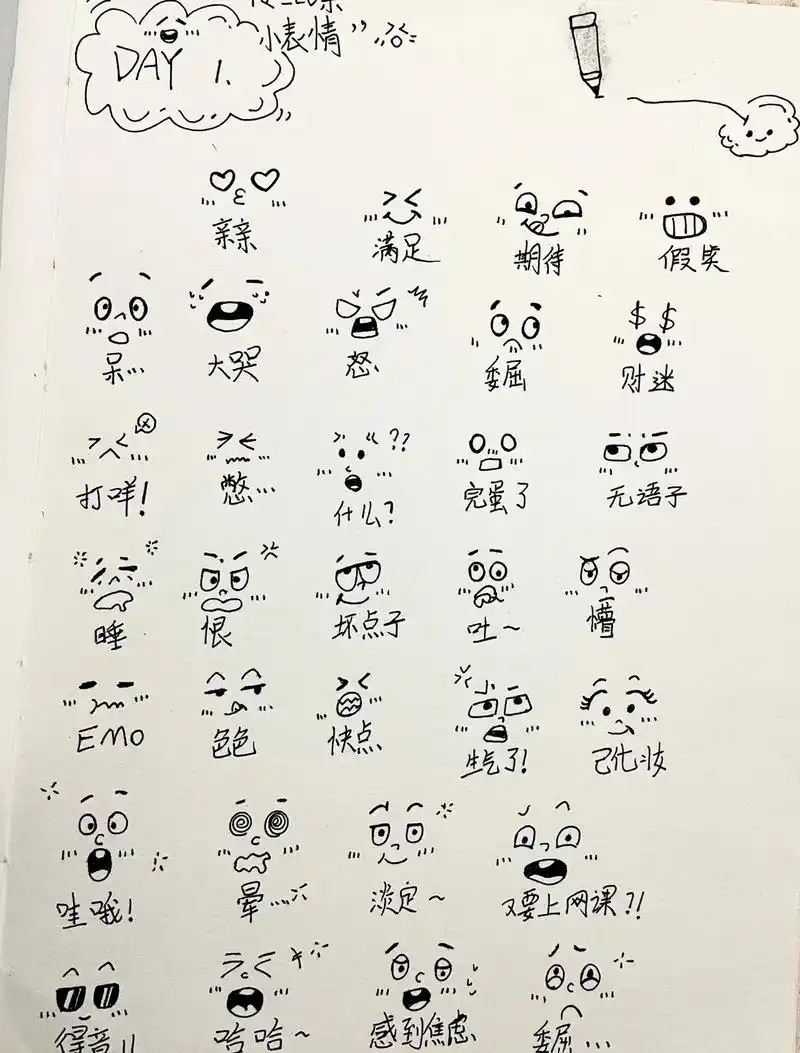 小表情”
DAY 1.
亲亲 满足 期待 假笑
呆... 大哭 怒 委屈 财迷
$ $
打咩! 憋... 什么? 完蛋了 无语子
??
睡 恨 坏点子 吐~ 懵
EMO 色色 快点 生气了! 已化妆
哇哦! 晕... 淡定~ 又要上网课?!
得意!! 哈哈~ 感到焦虑 委屈...